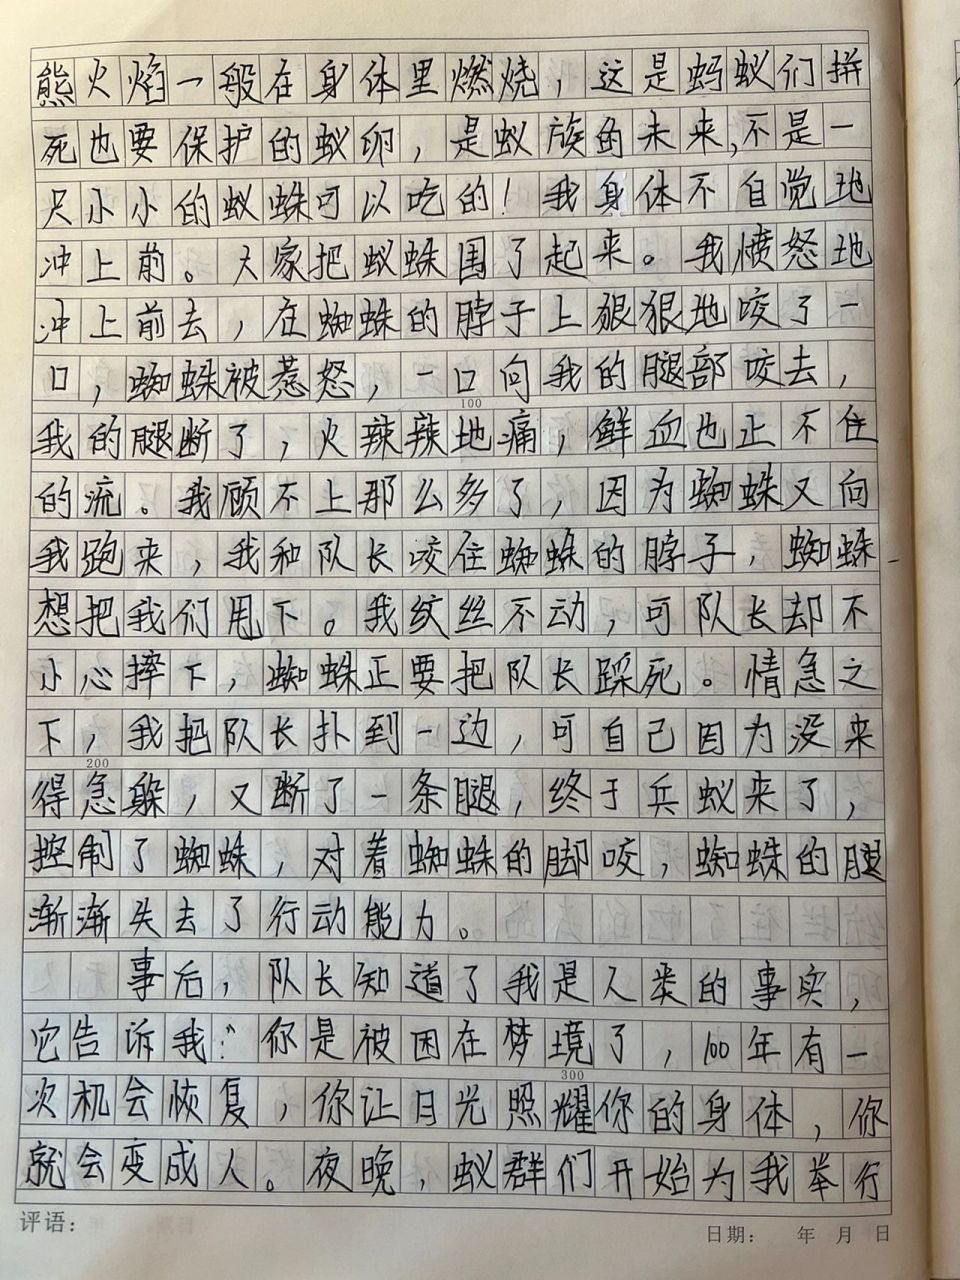 熊火焰一般在身体里燃烧，这是蚂蚁们拼
死也要保护的蚁卵，是蚁族的未来,不是一
只小小的蚁蛛可以吃的！我身体不自觉地
冲上前。大家把蚁蛛围了起来。我愤怒地
冲上前去，在蜘蛛的脖子上狠狠地咬了一
口，蜘蛛被惹怒，一口向我的腿部咬去，
100
我的腿断了，火辣辣地痛，鲜血也止不住
的流。我顾不上那么多了，因为蜘蛛又向
我跑来，我和队长咬住蜘蛛的脖子，蜘蛛
想把我们甩下。我纹丝不动，可队长却不
小心摔下，蜘蛛正要把队长踩死。情急之
下，我把队长扑到一边，可自己因为没来
200
得急躲，又断了一条腿，终于兵蚁来了，
控制了蜘蛛，对着蜘蛛的脚咬，蜘蛛的腿
渐渐失去了行动能力。
事后，队长知道了我是人类的事实，
它告诉我:"你是被困在梦境了，100年有一
300
次机会恢复，你让月光照耀你的身体，你
就会变成人。夜晚，蚁群们开始为我举行
评语：
日期： 年 月 日